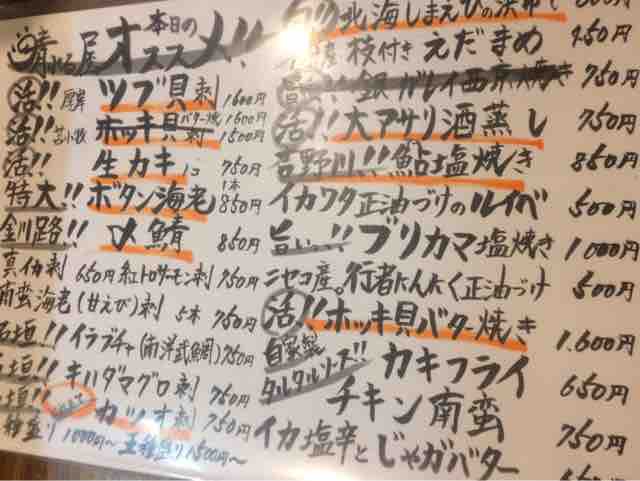 本日の
オススメ!!
活!! ツブ貝刺 1600円
活!! 苫小牧 ホッキ貝 バター焼 1600円 刺 1500円
活!! 生カキ 1コ 750円
特大!! ボタン海老 1本 850円
釧路!! 〆鯖 850円
真イカ刺 650円 紅トロサーモン刺 750円
南蛮海老(甘えび)刺 5本 750円
石垣!! イラブチャ(南洋武鯛) 750円
石垣!! キハダマグロ刺 750円
石垣!! カツオ刺 750円
1000円〜 五種盛り 1500円〜
北海しまえびの
枝付きえだまめ 450円
銀ガレイ西京焼き 750円
活!! 大アサリ酒蒸し 750円
吉野川!! 鮎塩焼き 850円
イカワタ正油づけのルイベ 500円
旨い!! ブリカマ塩焼き 1000円
ニセコ産。行者にんにく正油づけ 500円
活!! ホッキ貝バター焼き 1.600円
自家製 タルタルソース!! カキフライ 650円
チキン南蛮 750円
イカ塩辛とじゃがバター